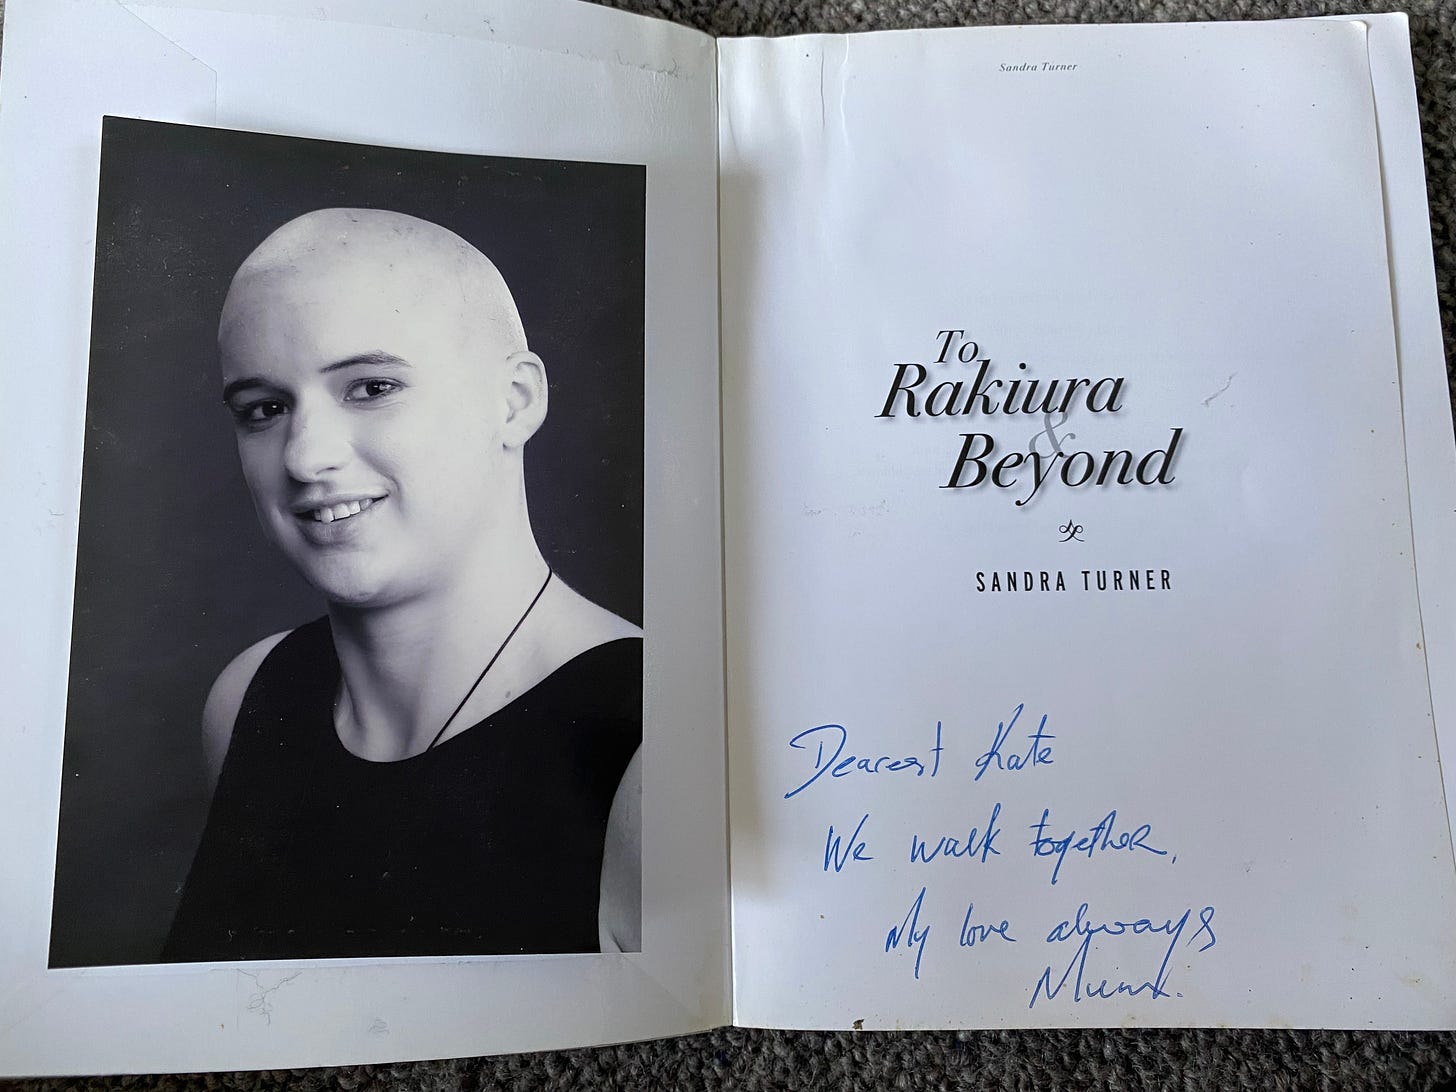 Sandra Turner
To
Rakiura
&
Beyond
SANDRA TURNER
Dearest Kate
We walk together,
My love always
Mum.